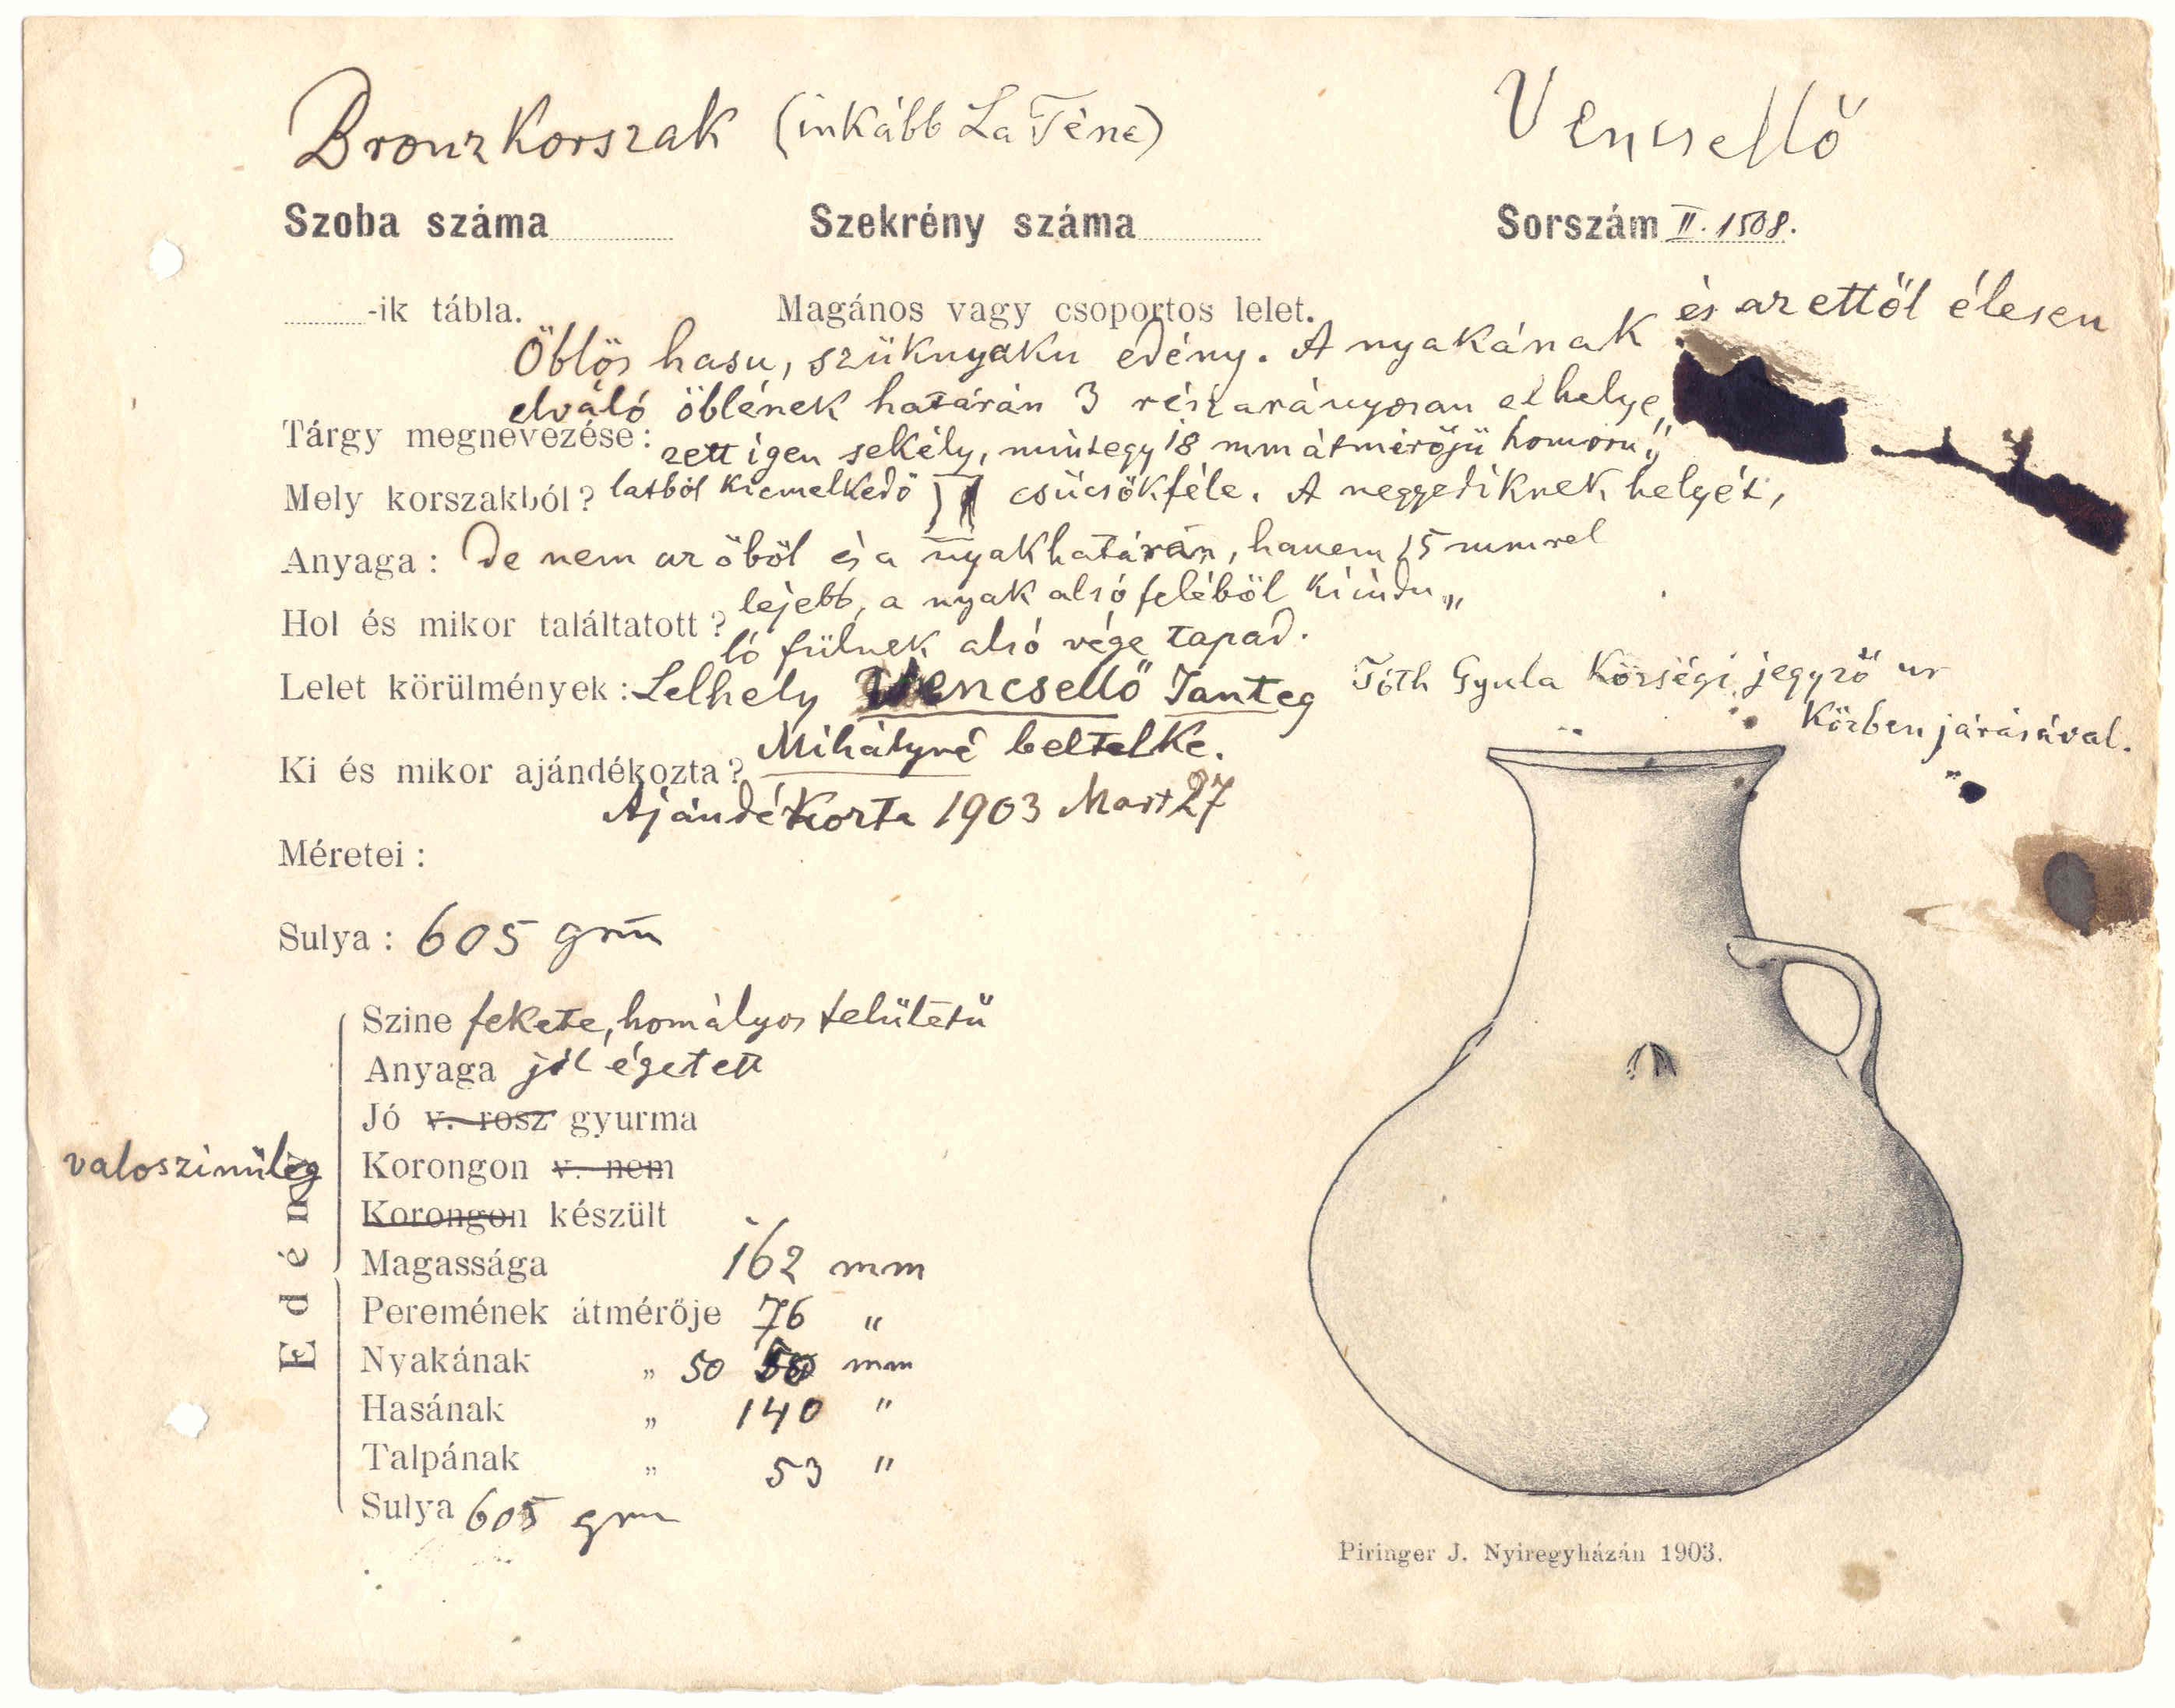 Bronzkorszak (inkább La Téne) Vencsellő
Szoba száma Szekrény száma Sorszám II. 1508.
-ik tábla. Magános vagy csoportos lelet.
és az ettől élesen
Öblös hasu, szüknyaku edény. A nyakának
elváló öblének határán 3 részarányosan elhelye„
Tárgy megnevezése: zett igen sekély, mintegy 18 mm átmérőjü homoru„
Mely korszakból? latból kiemelkedő csücsökféle. A negyediknek helyét,
Anyaga: de nem az öböl és a nyak határán, hanem 15 mmrel
Hol és mikor találtatott? lejebb, a nyak alsó feléből kiindu„
ló fülnek alsó vége tapad.
Lelet körülmények: Lelhely Vencsellő Tanteg Tóth Gyula Községi jegyző ur
Közbenjárásával.
Mihályné beltelke.
Ki és mikor ajándékozta?
Ajándékozta 1903 Mart 27
Méretei:
Sulya: 605 grm
Edény
Szine fekete, homályos felületü
Anyaga jól égetett
Jó v. rosz gyurma
valoszinüleg Korongon v. nem
Korongon készült
Magassága 162 mm
Peremének átmérője 76 "
Nyakának „ 50 mm
Hasának „ 140 "
Talpának „ 53 "
Sulya 605 grm
Piringer J. Nyiregyházán 1903.